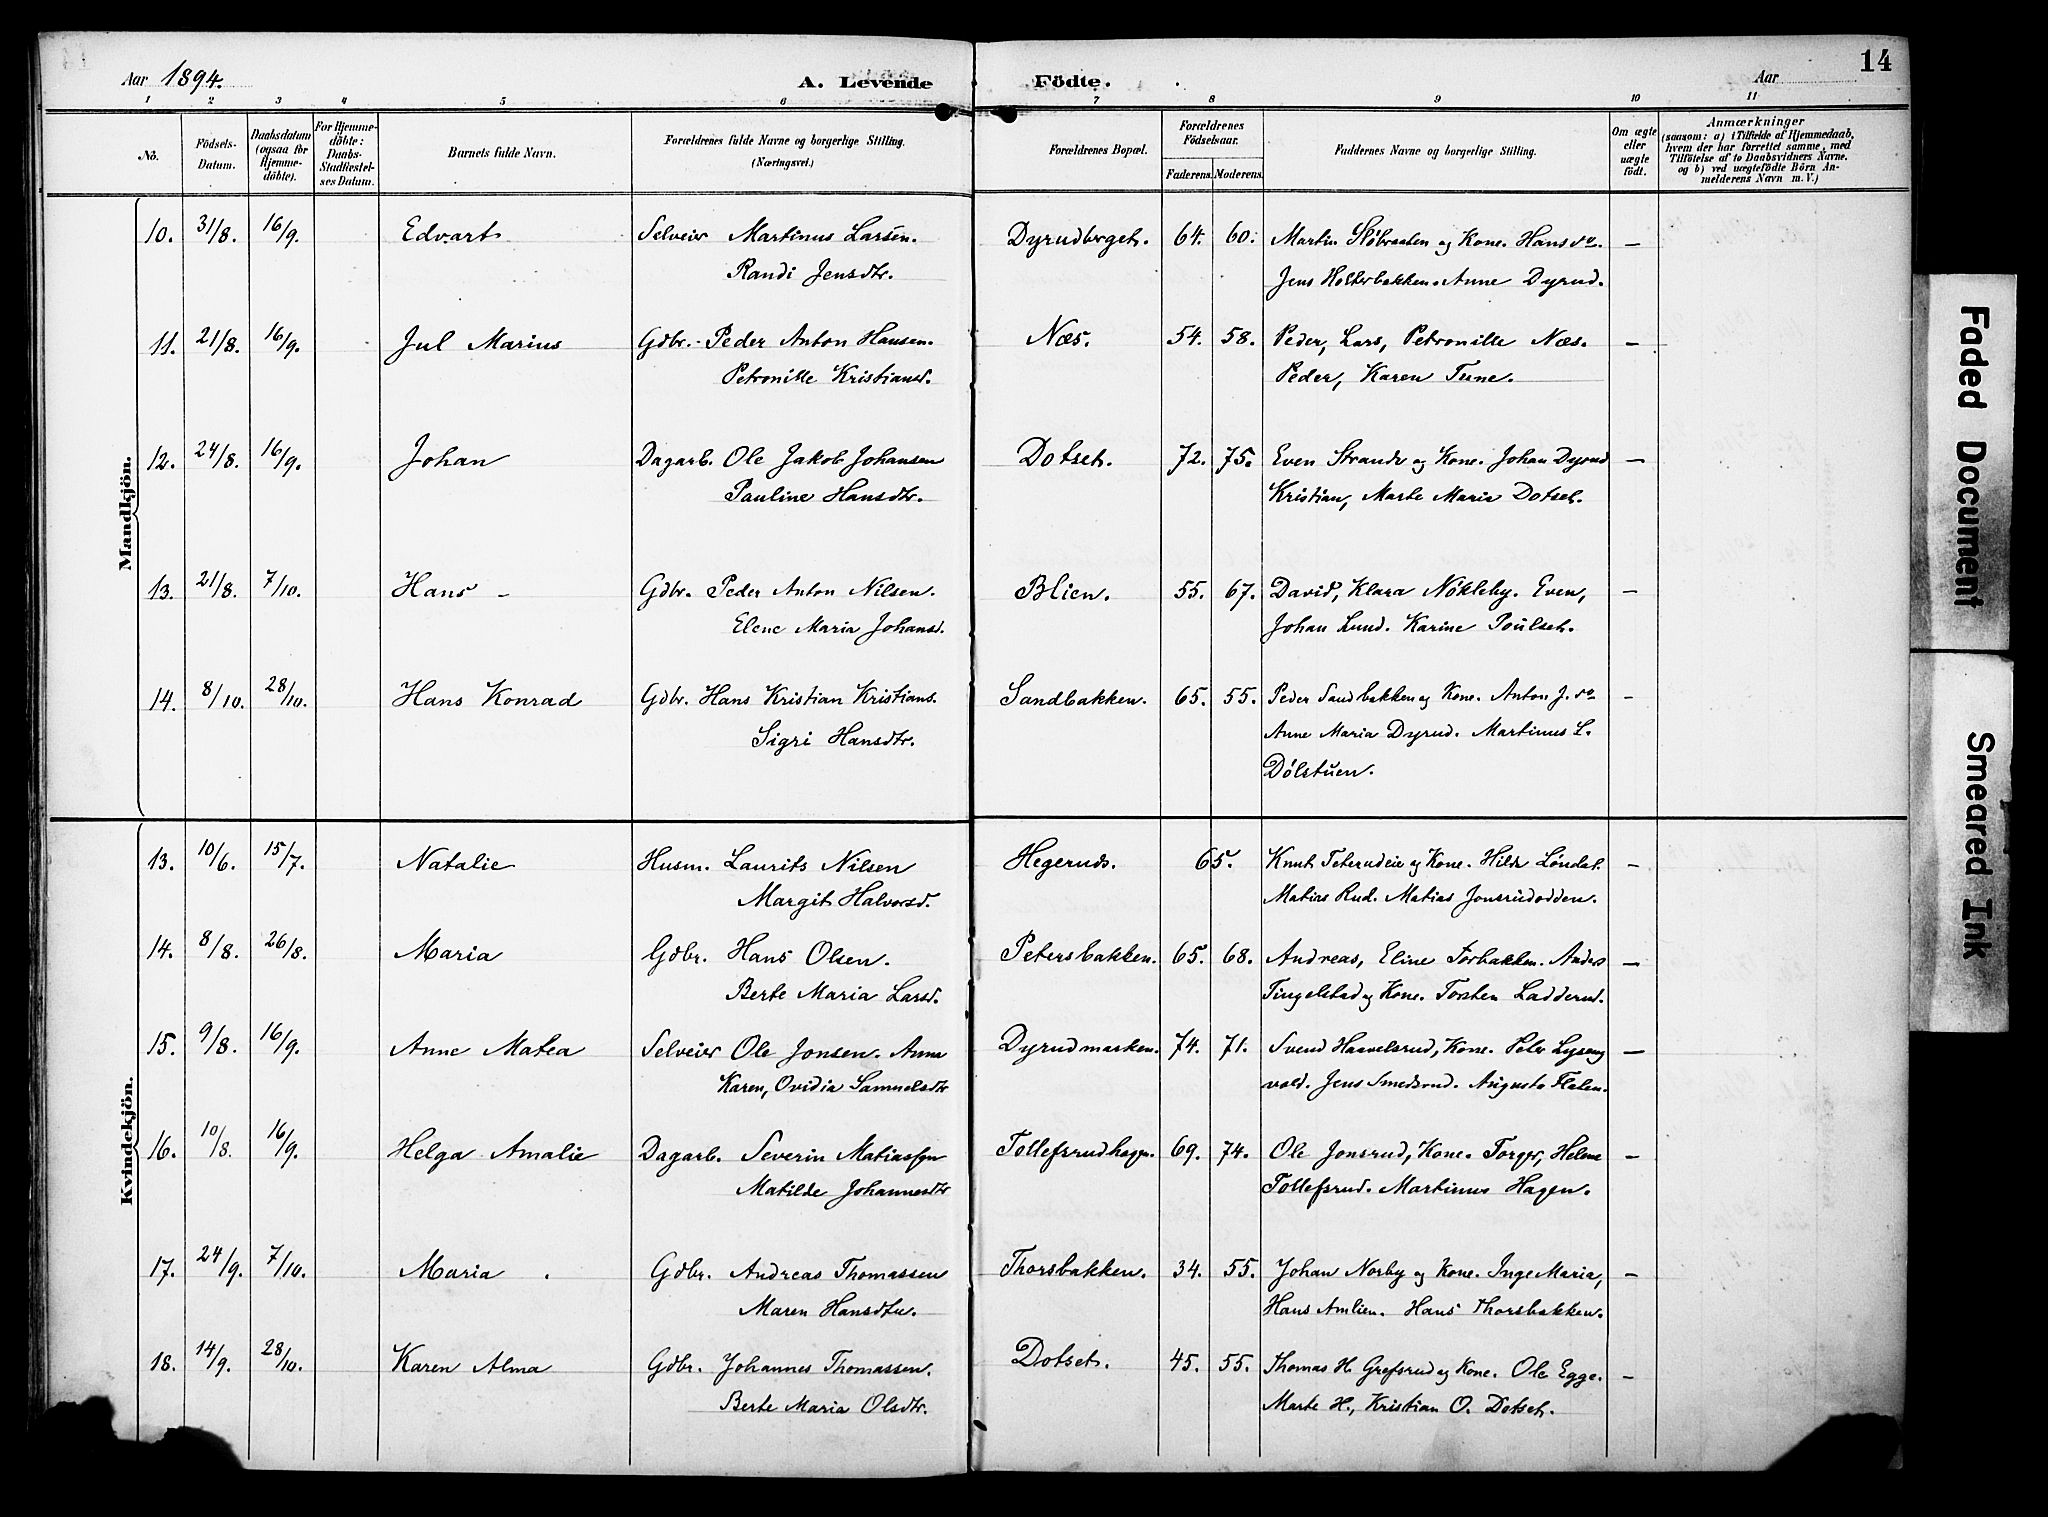 Aar 1894. A. Levende Födte. Aar 14
1 2 3 4 5 6 7 8 9 10 11
No. Födsels-Datum. Daabsdatum (ogsaa for Hjemme-döbte). For Hjemme-döbte: Daabs-Stadfæstel-ses Datum. Barnets fulde Navn. Forældrenes fulde Navne og borgerlige Stilling. (Næringsvei.) Forældrenes Bopæl. Forældrenes Födselsaar. Faderens. Moderens. Faddernes Navne og borgerlige Stilling. Om ægte eller uægte födt. Anmærkninger (saasom: a) i Tilfælde af Hjemmedaab, hvem der har forrettet samme, med Tilföielse af to Daabsvidners Navne. og b) ved uægtefödte Börn An-melderens Navn m. V.)
Mandkjön.
10. 31/8. 16/9. Edvart Selveier Martinus Larsen. Dyrudberget. 64. 60. Martin Slöbraaten og Kone. Hans do. —
Randi Jensdtr. Jens Holterbakken. Anne Dyrud.
11. 21/8. 16/9. Jul Marius Gdbr. Peder Anton Hansen. Næs. 54. 58. Peder, Lars, Petronille Næs. —
Petronille Kristiansd. Peder, Karen Tune.
12. 24/8. 16/9. Johan Dagarb. Ole Jakob Johansen Dotset. 72. 75. Even Strande og Kone. Johan Dyrud —
Pauline Hansdtr. Kristian, Marte Maria Dotset.
13. 21/8. 7/10. Hans Gdbr. Peder Anton Nilsen. Blien. 55. 67. David, Klara Nökleby. Even, —
Elene Maria Johansd. Johan Lund. Karine Poulset.
14. 8/10. 28/10. Hans Konrad Gdbr. Hans Kristian Kristians. Sandbakken. 65. 55. Peder Sandbakken og Kone. Anton J. do —
Sigri Hansdtr. Anne Maria Dyrud. Martinus L.
Dölstuen.
Kvindekjön.
13. 10/6. 15/7. Natalie Husm. Laurits Nilsen Hegerud. 65. Knut Teterudeie og Kone. Hilda Löndal. —
Margit Halvorsd. Matias Rud. Matias Jonsrudodden.
14. 8/8. 26/8. Maria Gdbr. Hans Olsen. Petersbakken. 65. 68. Andreas, Eline Torbakken. Anders —
Berte Maria Larsd. Tingelstad og Kone. Torsten Ladderud.
15. 9/8. 16/9. Anne Matea Selveier Ole Jonsen. Anne Dyrudmarken. 74. 71. Svend Haavelsrud, Kone. Peder Lyseng —
Karen, Ovidia Samuelsdtr vold. Jens Smedsrud. Augusta Flaten.
16. 10/8. 16/9. Helga Amalie Dagarb. Severin Matiassen Tollefsrudhagen. 69. 74. Ole Jonsrud, Kone. Torger, Helene —
Matilde Johannesdtr Tollefsrud. Martinus Hagen.
17. 24/9. 7/10. Maria Gdbr. Andreas Thomassen Thorsbakken. 34. 55. Johan Norby og Kone. Inge Maria, —
Maren Hansdtr. Hans Amlien. Hans Thorsbakken.
18. 14/9. 28/10. Karen Alma Gdbr. Johannes Thomassen. Dotset. 45. 55. Thomas H. Grefsrud og Kone. Ole Egge. —
Berte Maria Olsdtr. Marte H., Kristian O. Dotset.
Faded Document
Smeared Ink